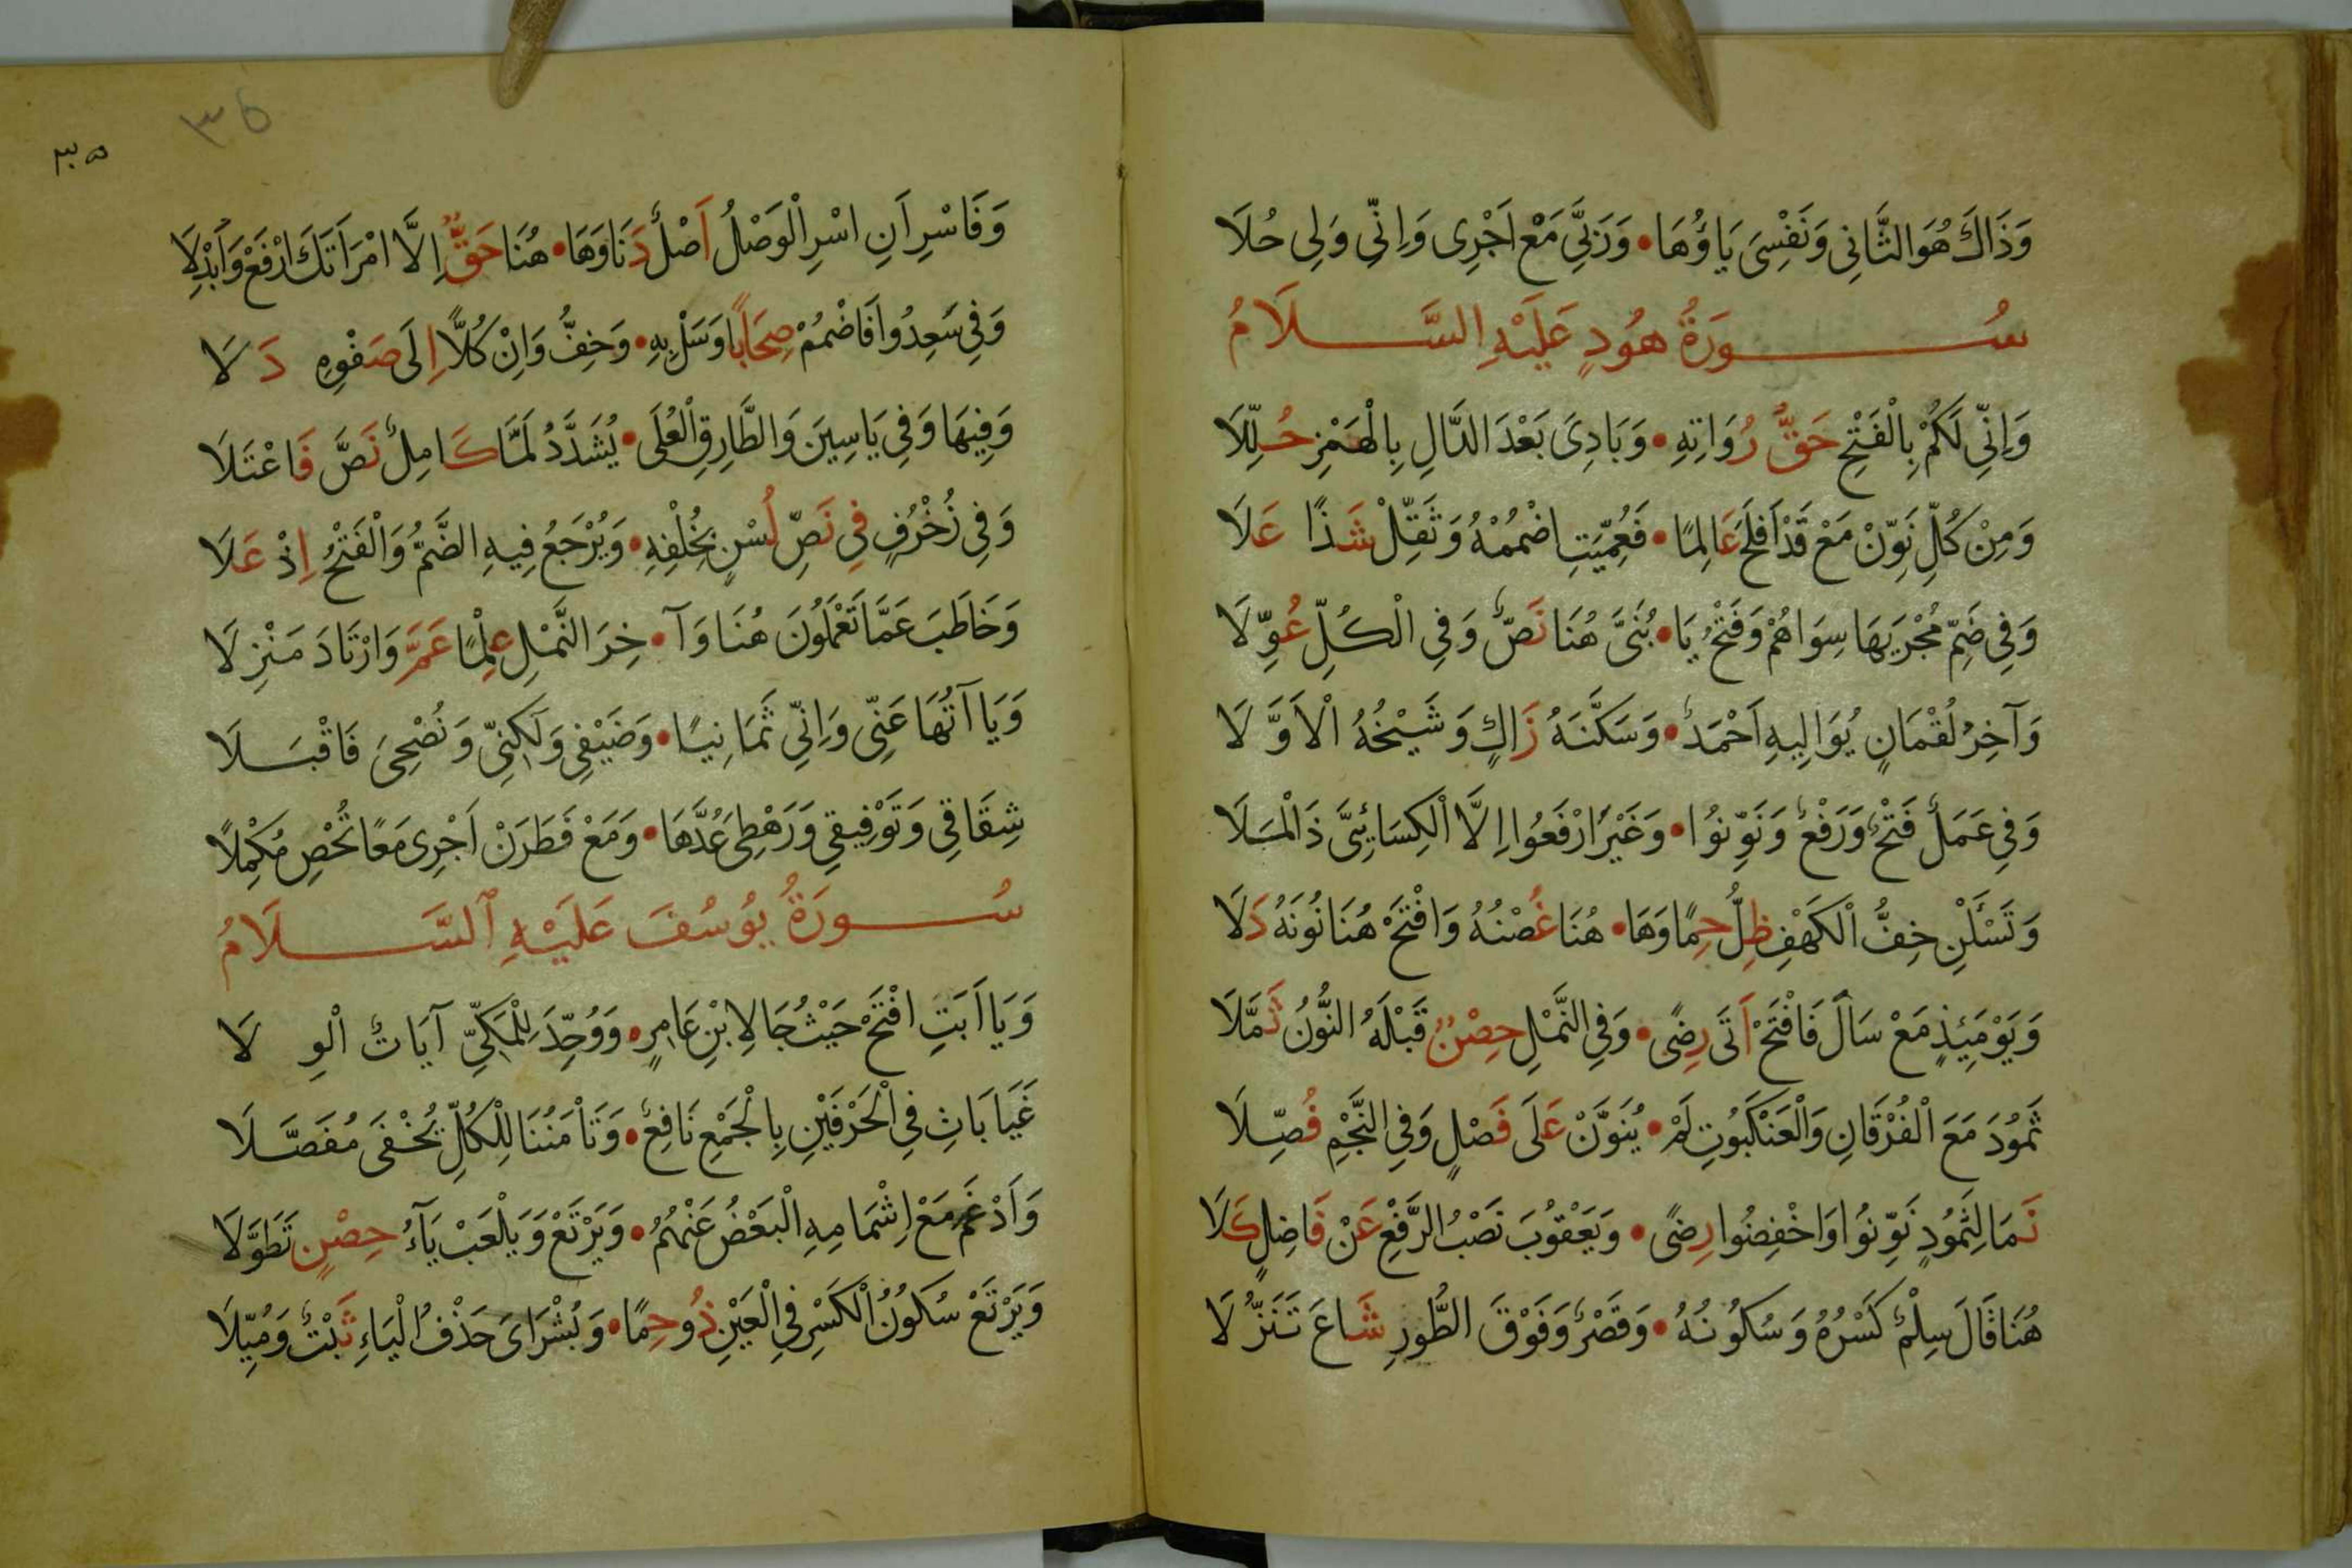 وَذَاكَ هُوَ الثَّانِى وَنَفْسِىَ يَاؤُهَا • وَرَبِّىَ مَعْ اَجْرِى وَاِنِّى وَلِى حُلَا
سُورَةُ هُودٍ عَلَيْهِ السَّلَامُ
وَاِنِّى لَكُمْ بِالْفَتْحِ حَقُّ رُوَاتِهِ • وَبَادِئَ بَعْدَ الدَّالِ بِالْهَمْزِ حُلِّلَا
وَمِنْ كُلِّ نَوِّنْ مَعْ قَدْ اَفْلَحَ عَالِمًا • فَعُمِّيَتِ اضْمُمْهُ وَثَقِّلْ شَذًا عَلَا
وَفِى ضَمِّ مُجْرَيهَا سِوَاهُمْ وَفَتْحُ يَا • بُنَىَّ هُنَا نَصٌّ وَفِى الْكُلِّ عُوِّلَا
وَآخِرُ لُقْمَانٍ يُوَالِيهِ اَحْمَدٌ • وَسَكَّنَهُ زَاكٍ وَشَيْخُهُ الْاَوَّلَا
وَفِى عَمَلٌ فَتْحٌ وَرَفْعٌ وَنَوِّنُوا • وَغَيْرَ ارْفَعُوا اِلَّا الْكِسَائِىَّ ذَا الْمَلَا
وَتَسْئَلْنِ خِفُّ الْكَهْفِ ظِلُّ حِمًا وَهَا • هُنَا غُصْنُهُ وَافْتَحْ هُنَا نُونَهُ دَلَا
وَيَوْمَئِذٍ مَعْ سَالَ فَافْتَحْ اَتَى رِضًى • وَفِى النَّمْلِ حِصْنٌ قَبْلَهُ النُّونُ ثَمَّلَا
ثَمُودَ مَعَ الْفُرْقَانِ وَالْعَنْكَبُوتِ لَمْ • يُنَوَّنْ عَلَى فَصْلٍ وَفِى النَّجْمِ فُصِّلَا
نَمَا لِثَمُودٍ نَوِّنُوا وَاخْفِضُوا رِضًى • وَيَعْقُوبَ نَصْبُ الرَّفْعِ عَنْ فَاضِلٍ كَلَا
هُنَا قَالَ سِلْمٌ كَسْرُهُ وَسُكُونُهُ • وَقَصْرٌ وَفَوْقَ الطُّورِ شَاعَ تَنَزُّلَا
٣٥
٣٥
وَفَاسْرِ اَنِ اسْرِ الْوَصْلُ اَصْلٌ دَنَا وَهَا • هُنَا حَقٌّ اِلَّا امْرَاَتَكَ ارْفَعْ وَاَبْدِلَا
وَفِى سَعِدُوا فَاضْمُمْ صِحَابًا وَسَلْ بِهِ • وَخِفُّ وَاِنْ كُلًّا اِلَى صَفْوِهِ دَلَا
وَفِيهَا وَفِى يَاسِينَ وَالطَّارِقِ الْعُلَى • يُشَدَّدُ لَمَّا كَامِلٌ نَصَّ فَاعْتَلَا
وَفِى زُخْرُفٍ فِى نَصِّ لُسْنٍ بِخُلْفِهِ • وَيُرْجَعُ فِيهِ الضَّمُّ وَالْفَتْحُ اِذْ عَلَا
وَخَاطَبَ عَمَّا تَعْمَلُونَ هُنَا وَآ • خِرَ النَّمْلِ عِلْمًا عَمَّ وَارْتَادَ مَنْزِلَا
وَيَا آتُهَا عَنِّى وَاِنِّى ثَمَانِيًا • وَضَيْفِى وَلَكِنِّى وَنُصْحِىَ فَاقْبَلَا
شِقَاقِى وَتَوْفِيقِى وَرَهْطِى عُدَّهَا • وَمَعْ فَطَرَنْ اَجْرِى مَعًا تُحْصِ مُكْمِلًا
سُورَةُ يُوسُفَ عَلَيْهِ ٱلسَّلَامُ
وَيَا اَبَتِ افْتَحْ حَيْثُ جَا لِابْنِ عَامِرٍ • وَوُحِّدَ لِلْمَكِّىِّ آيَاتٌ الْوِلَا
غَيَابَاتِ فِى الْحَرْفَيْنِ بِالْجَمْعِ نَافِعٌ • وَتَأْمَنُنَا لِلْكُلِّ يُخْفَى مُفَصَّلَا
وَاَدْغَمَ مَعْ اِشْمَامِهِ الْبَعْضُ عَنْهُمُ • وَيَرْتَعْ وَيَلْعَبْ يَآءُ حِصْنٍ تَطَوَّلَا
وَيَرْتَعْ سُكُونُ الْكَسْرِ فِى الْعَيْنِ ذُو حِمًا • وَبُشْرَاىَ حَذْفُ الْيَاءِ ثَبْتٌ وَمُيِّلَا